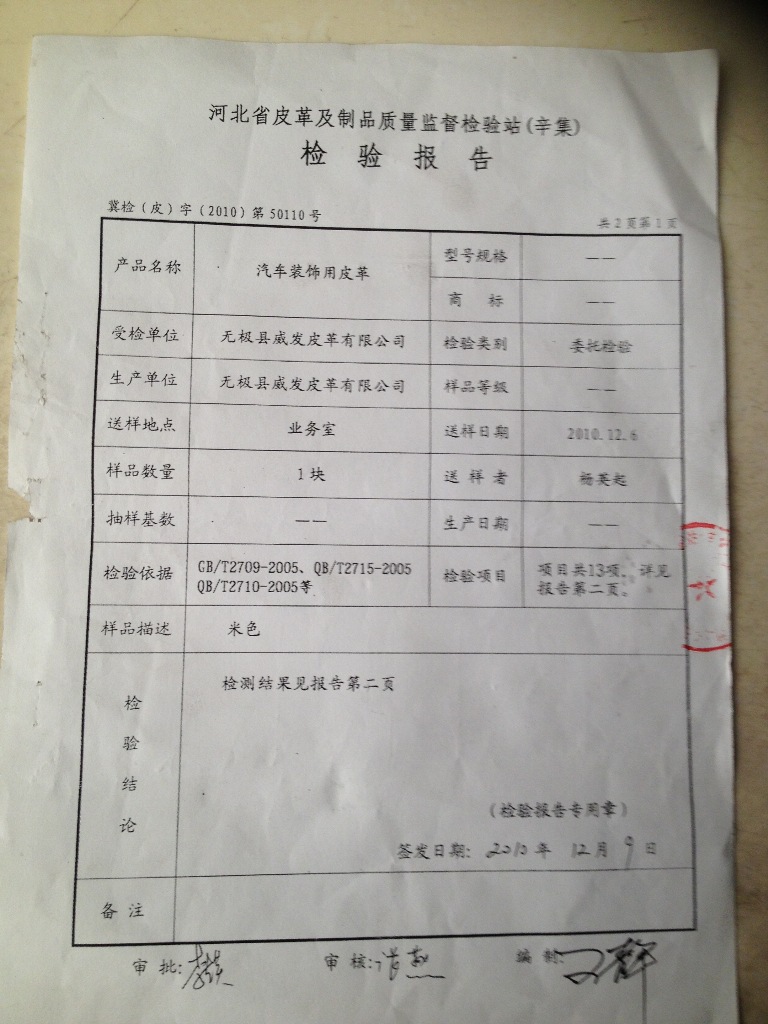 河北省皮革及制品质量监督检验站(辛集)
检 验 报 告
冀检(皮)字(2010)第50110号
共2页第1页
产品名称 汽车装饰用皮革 型号规格 ——
商 标 ——
受检单位 无极县威发皮革有限公司 检验类别 委托检验
生产单位 无极县威发皮革有限公司 样品等级 ——
送样地点 业务室 送样日期 2010.12.6
样品数量 1块 送 样 者 杨英起
抽样基数 —— 生产日期 ——
检验依据 GB/T2709-2005、QB/T2715-2005 检验项目 项目共13项、详见
QB/T2710-2005等 报告第二页。
样品描述 米色
检验结论 检测结果见报告第二页
(检验报告专用章)
签发日期: 2010年 12月 9日
备 注
审 批: 审 核: 编 制: